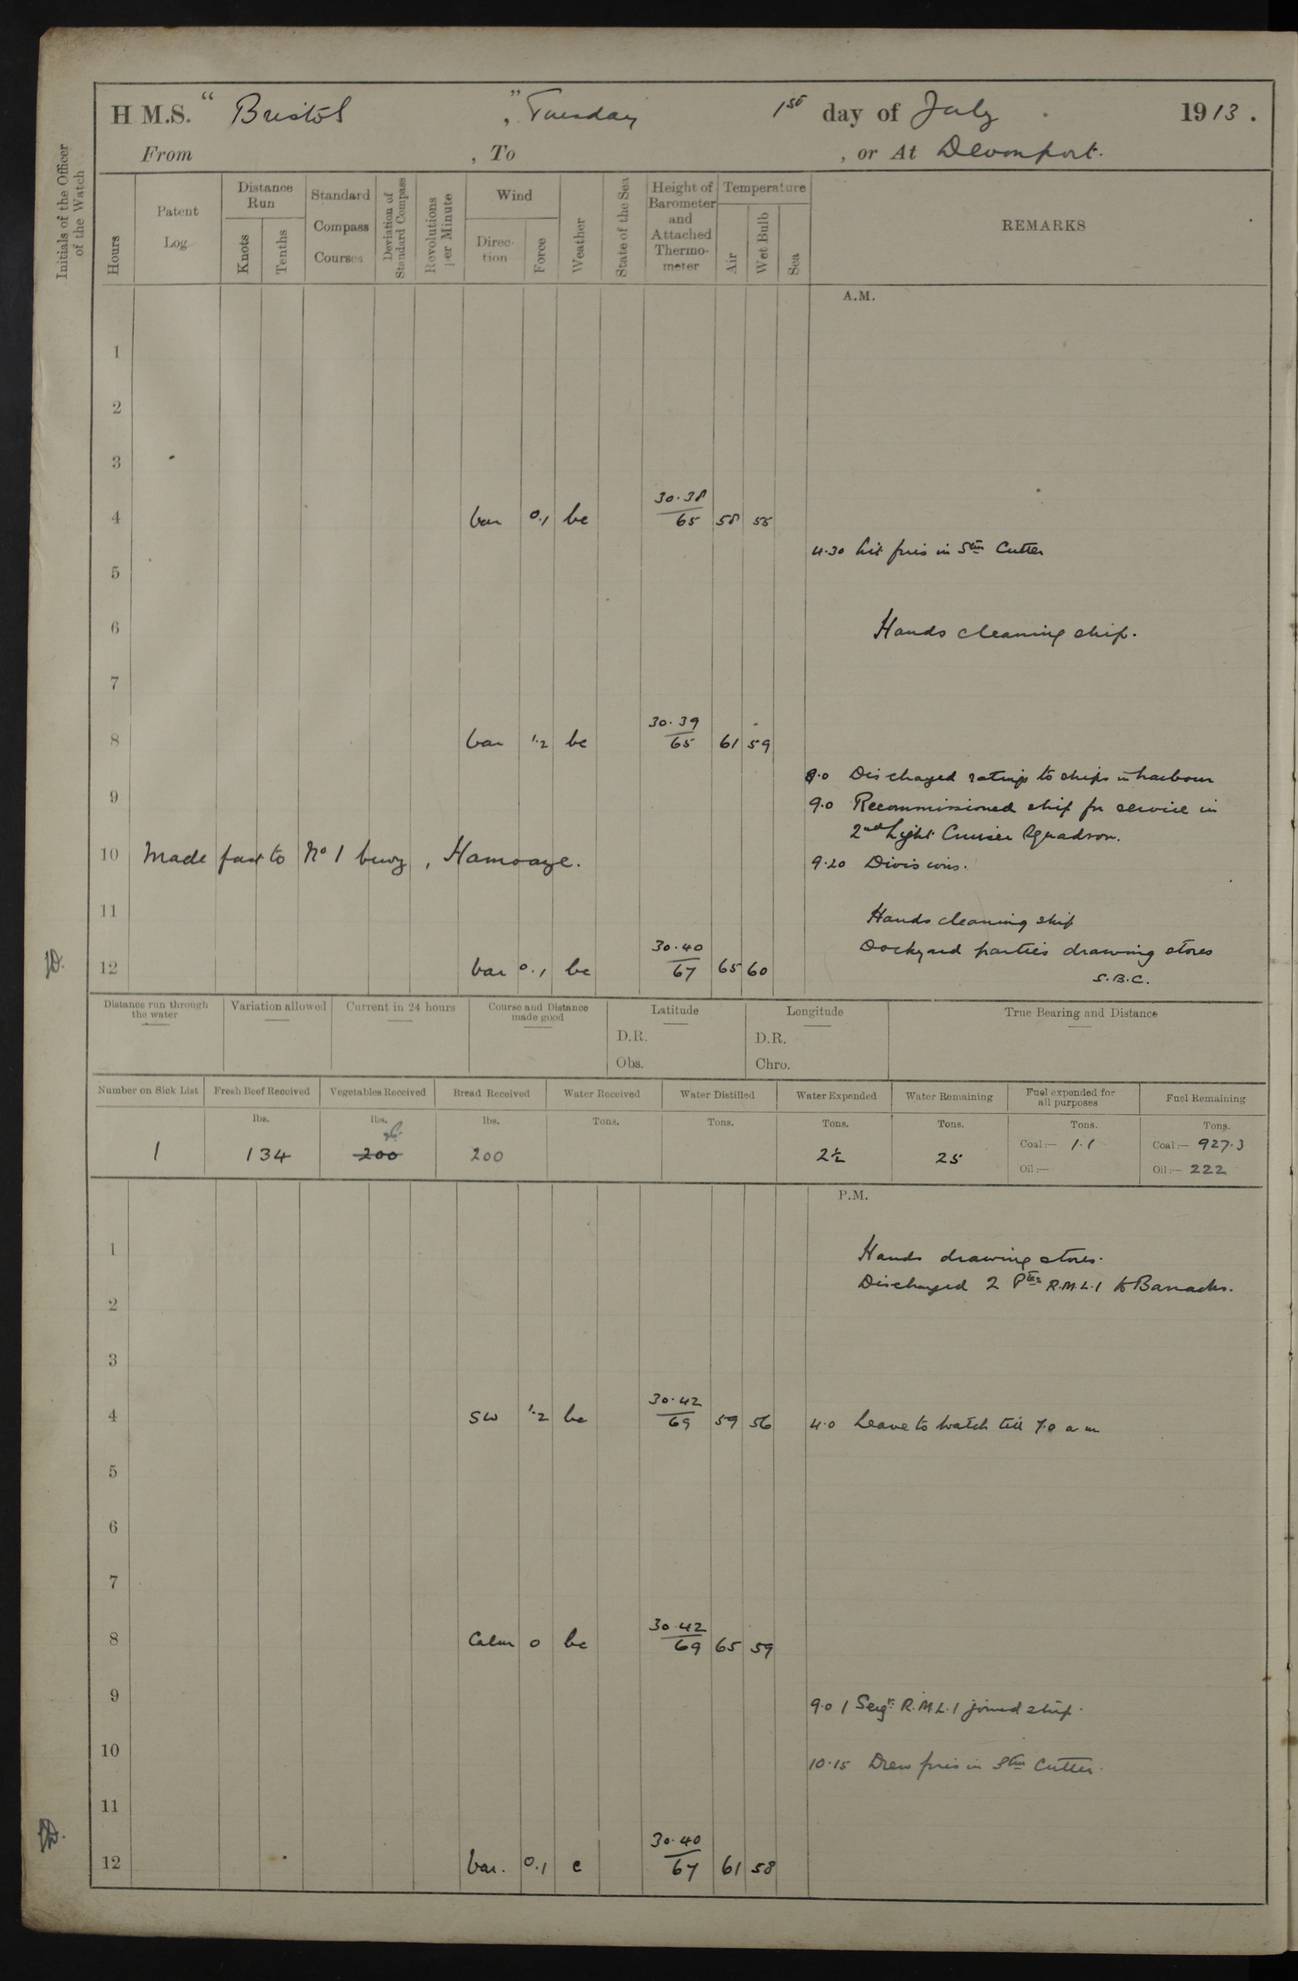 H M.S. "Bristol", Tuesday 1st day of July 1913.
From , To , or At Devonport.
Initials of the Officer of the Watch
Hours
Patent Log
Distance Run
Knots
Tenths
Standard Compass Courses
Deviation of Standard Compass
Revolutions per Minute
Wind
Direction
Force
Weather
State of the Sea
Height of Barometer and Attached Thermometer
Temperature
Air
Wet Bulb
Sea
REMARKS
A.M.
1
2
3
4 var 0.1 bc 30.38 65 58 55
4.30 Lit fires in Stm Cutter
5
6 Hands cleaning ship.
7
8 var 1.2 bc 30.39 65 61 59
9.0 Discharged ratings to ships in harbour
9 9.0 Recommissioned ship for service in
2nd Light Cruiser Squadron.
10 Made fast to No 1 buoy, Hamoaze. 9.20 Divisions.
11 Hands cleaning ship
Dockyard parties drawing stores
12 var 0.1 bc 30.40 67 65 60
S.B.C.
Distance run through the water
Variation allowed
Current in 24 hours
Course and Distance made good
Latitude
D.R.
Obs.
Longitude
D.R.
Chro.
True Bearing and Distance
Number on Sick List Fresh Beef Received Vegetables Received Bread Received Water Received Water Distilled Water Expended Water Remaining Fuel expended for all purposes Fuel Remaining
lbs. lbs. lbs. Tons. Tons. Tons. Tons. Tons. Tons.
1 134 200 200 2½ 25 Coal:— 1.1 Coal:— 927.3
Oil:— Oil:— 222
P.M.
1 Hands drawing stores.
Discharged 2 Ptes R.M.L.I to Barracks.
2
3
4 SW 1.2 bc 30.42 69 59 56 4.0 Leave to watch till 7.0 a m
5
6
7
8 Calm 0 bc 30.42 69 65 59
9 9.0 1 Sergt R.M.L.I joined ship.
10 10.15 Drew fires in Stm Cutter.
11
12 var. 0.1 c 30.40 67 61 58